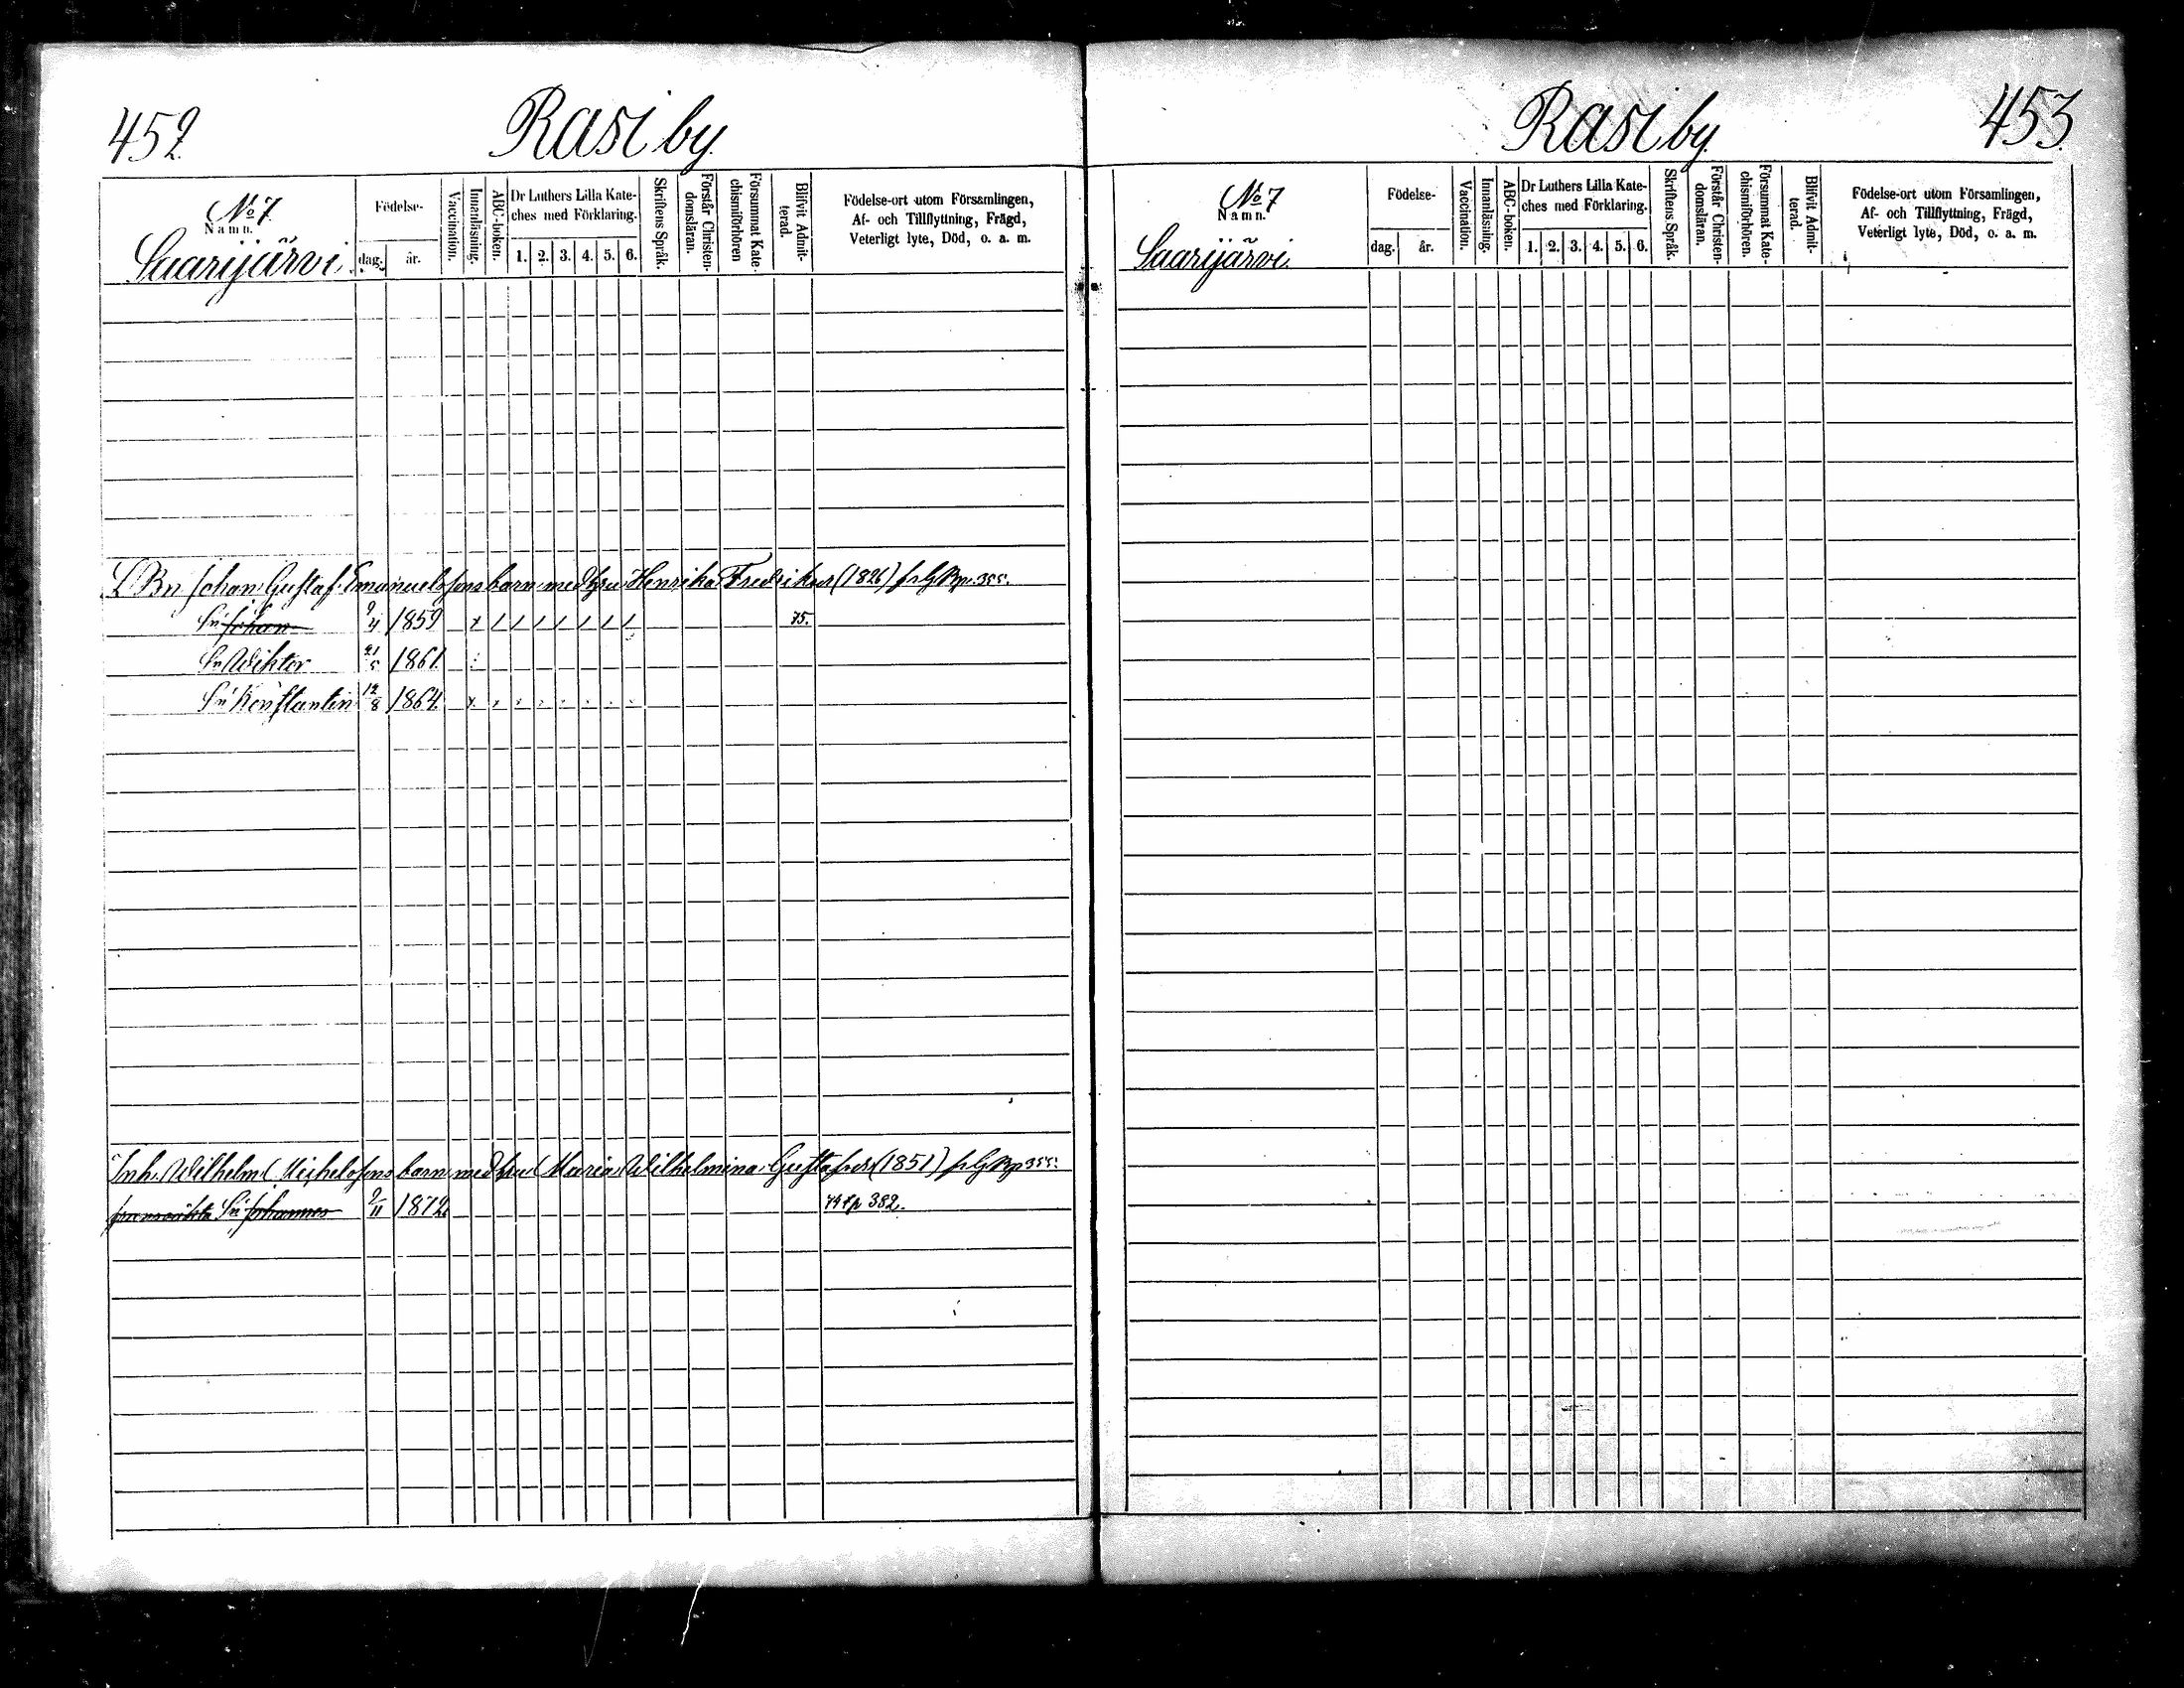 452
Rasi by
No 7
Namn.
Saarijärvi.
Födelse-
dag.
år.
Vaccination.
Innanläsning.
ABC-boken.
Dr Luthers Lilla Kate-
ches med Förklaring.
1. 2. 3. 4. 5. 6.
Skriftens Språk.
Förstår Christen-
domsläran.
Försummat Kate-
chismiförhören
Blifvit Admit-
terad.
Födelse-ort utom Församlingen,
Af- och Tillflyttning, Frägd,
Veterligt lyte, Död, o. a. m.
Johan Gustaf Emanuelssons barn med hru Henrika Fredriksdr (1826) 355.
Sn Johan 9/4 1859 x / / / / / / / 75.
Sn Wiktor 21/5 1861
Sn Konstantin 12/8 1864
Inh. Wilhelm Michelssons barn med hru Maria Wilhelmina Gustafsdr (1851) 355.
Sn Johannes 9/11 1872 382.
Rasi by
453.
No 7
Namn.
Saarijärvi.
Födelse-
dag.
år.
Vaccination.
Innanläsning.
ABC-boken.
Dr Luthers Lilla Kate-
ches med Förklaring.
1. 2. 3. 4. 5. 6.
Skriftens Språk.
Förstår Christen-
domsläran.
Försummat Kate-
chismiförhören.
Blifvit Admit-
terad.
Födelse-ort utom Församlingen,
Af- och Tillflyttning, Frägd,
Veterligt lyte, Död, o. a. m.